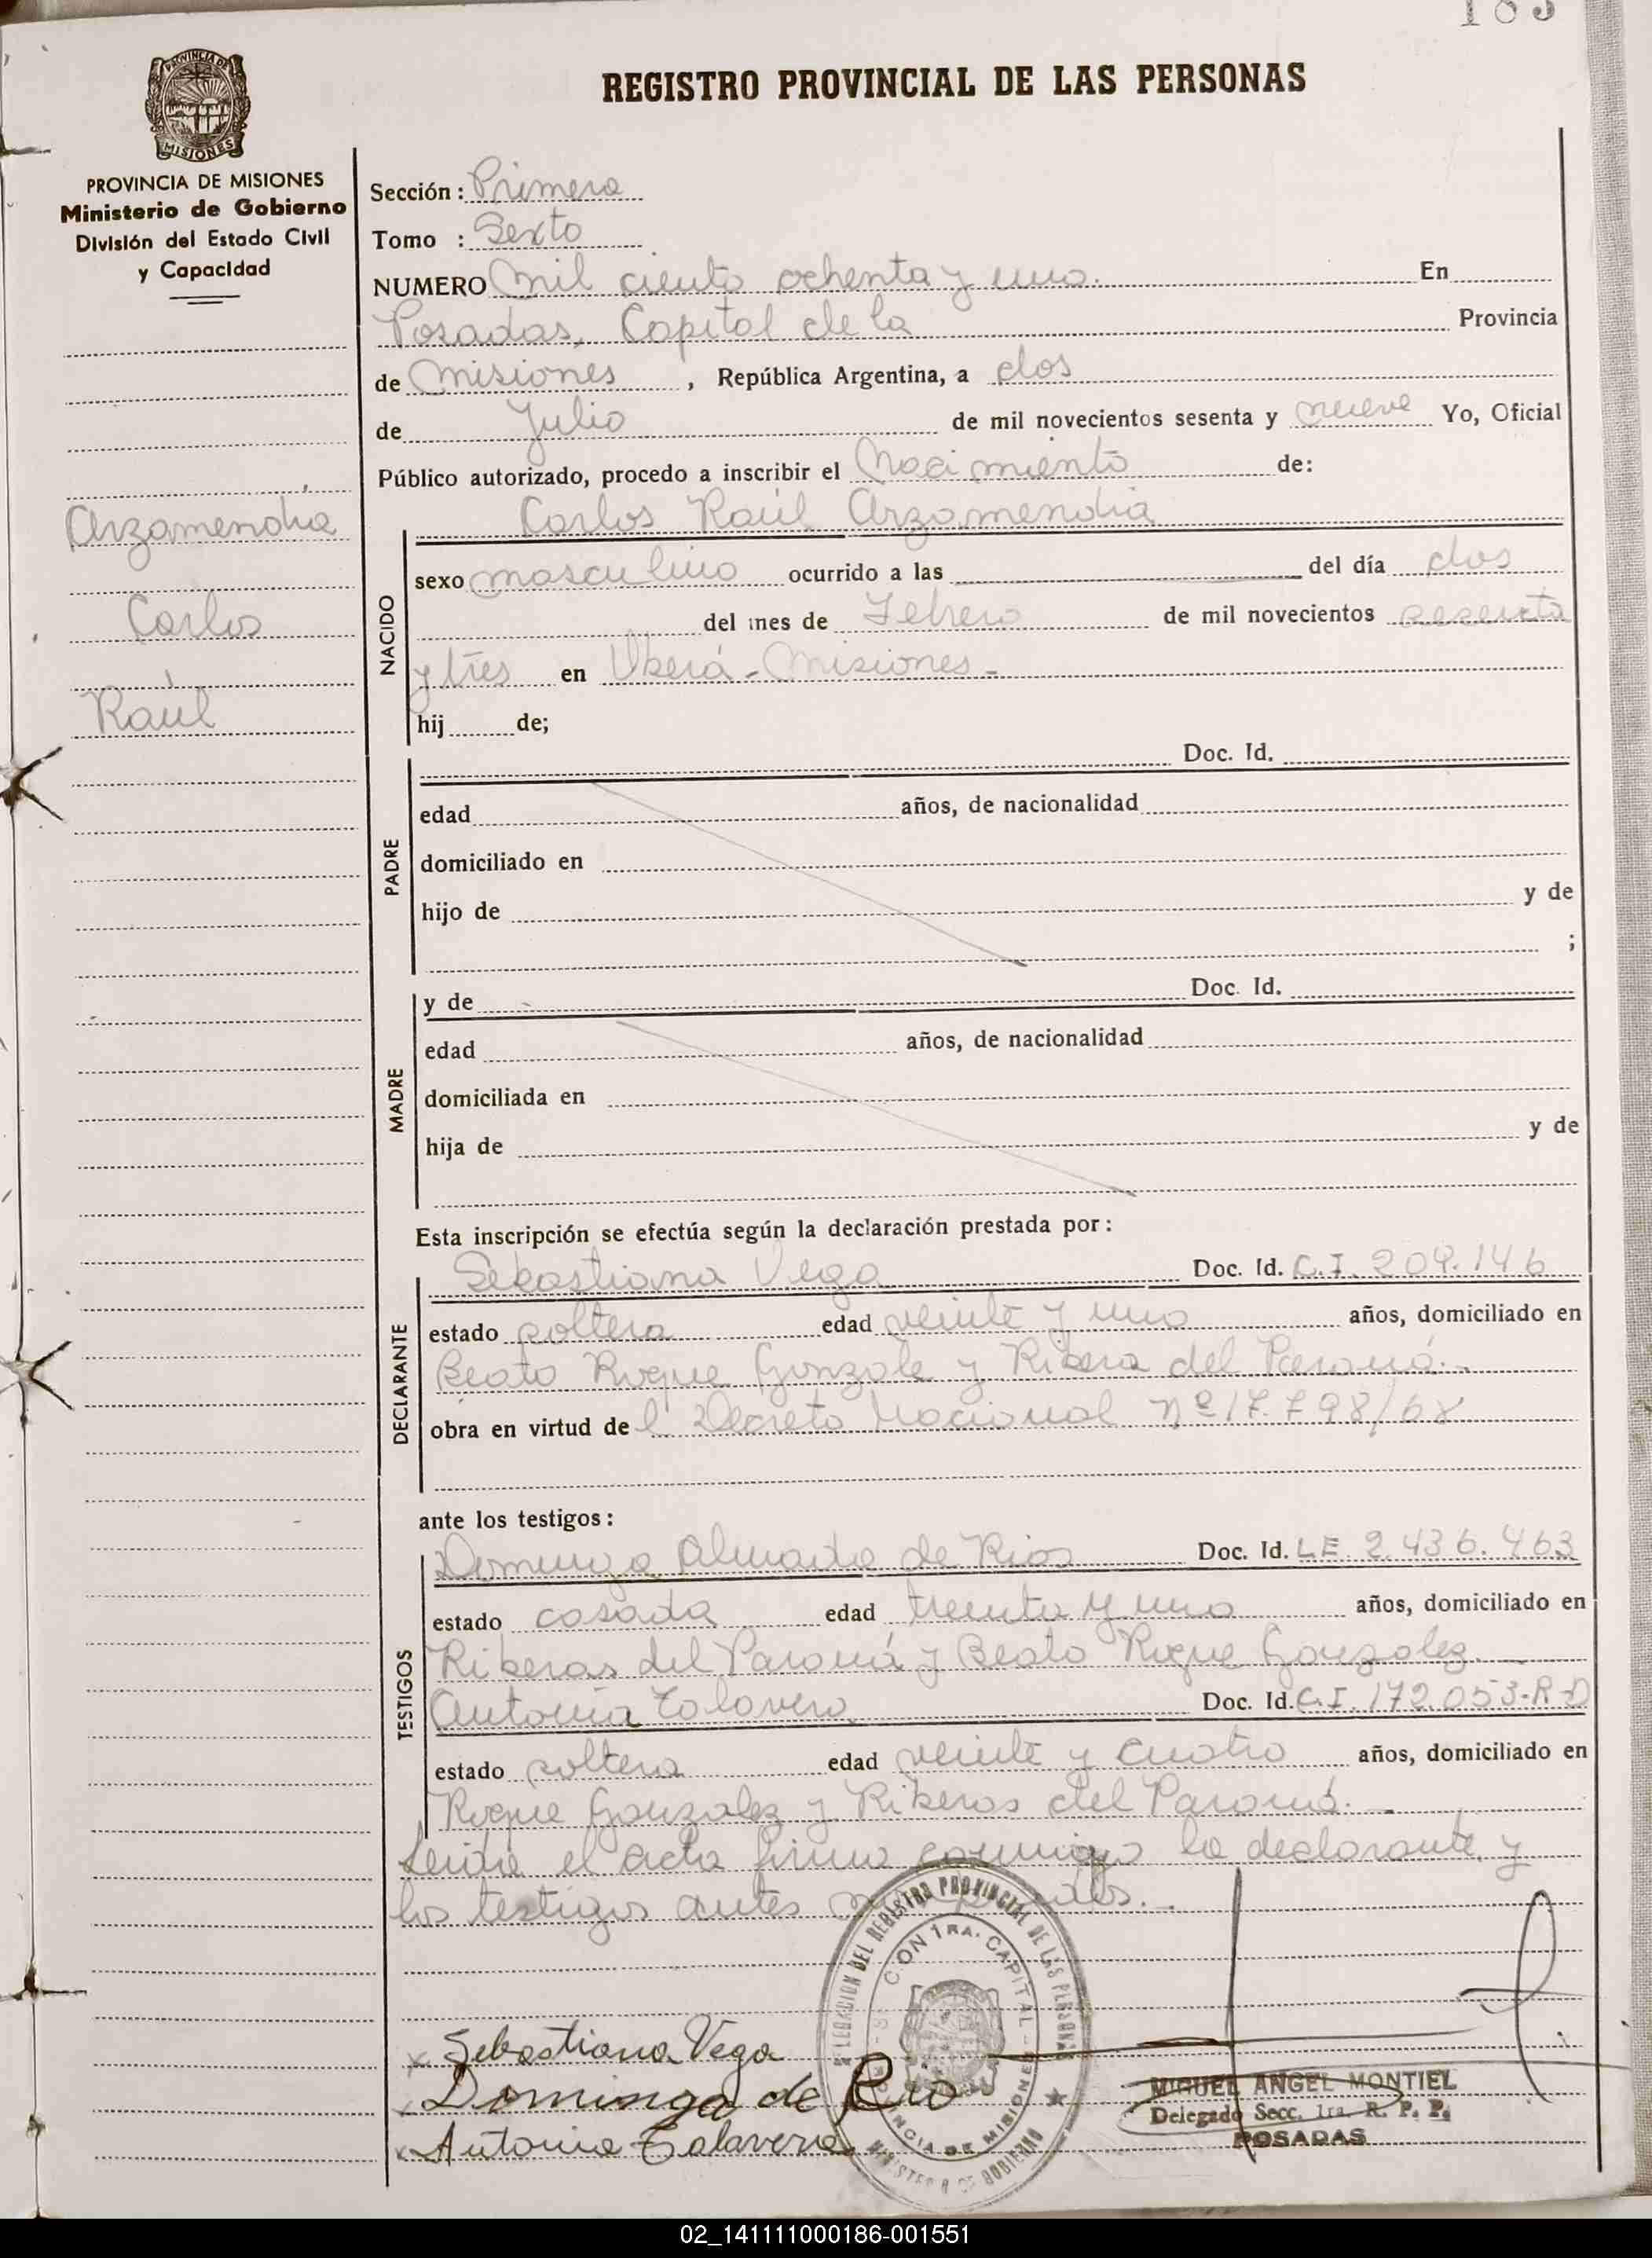 183
REGISTRO PROVINCIAL DE LAS PERSONAS
PROVINCIA DE MISIONES
PROVINCIA DE MISIONES
Ministerio de Gobierno
División del Estado Civil
y Capacidad
Arzamendia
Carlos
Raúl
Sección: Primera
Tomo : Sexto
NUMERO Mil ciento ochenta y uno. En
Posadas, Capital de la Provincia
de Misiones, República Argentina, a dos
de Julio de mil novecientos sesenta y nueve Yo, Oficial
Público autorizado, procedo a inscribir el Nacimiento de:
Carlos Raúl Arzamendia
NACIDO
sexo masculino ocurrido a las del día dos
del mes de Febrero de mil novecientos sesenta
y tres en Oberá - Misiones -
hij de;
PADRE
Doc. Id.
edad años, de nacionalidad
domiciliado en
hijo de y de
;
MADRE
y de Doc. Id.
edad años, de nacionalidad
domiciliada en
hija de y de
Esta inscripción se efectúa según la declaración prestada por:
DECLARANTE
Sebastiana Vega Doc. Id. C.I. 209.146
estado soltera edad veinte y uno años, domiciliado en
Beato Roque Gonzale y Ribera del Paraná.-
obra en virtud de l Decreto Nacional Nº 17.798/68
ante los testigos:
TESTIGOS
Dominga Almada de Rios Doc. Id. LE 2.436.463
estado casada edad treinta y uno años, domiciliado en
Riberas del Paraná y Beato Roque Gonzalez.
Antonia Talavera Doc. Id. C.I. 172.053-R-D
estado soltera edad veinte y cuatro años, domiciliado en
Roque Gonzalez y Riberas del Paraná. -
Leida el acta firma conmigo la declarante y
los testigos antes
DELEGACION DEL REGISTRO PROVINCIAL DE LAS PERSONAS
CONTRA. CAPITAL
PROVINCIA DE MISIONES
MINISTERIO DE GOBIERNO
x Sebastiana Vega
Dominga de Rio
x Antonia Talavera
MIGUEL ANGEL MONTIEL
Delegado Secc. 1ra. R. P. P.
POSADAS
02_141111000186-001551